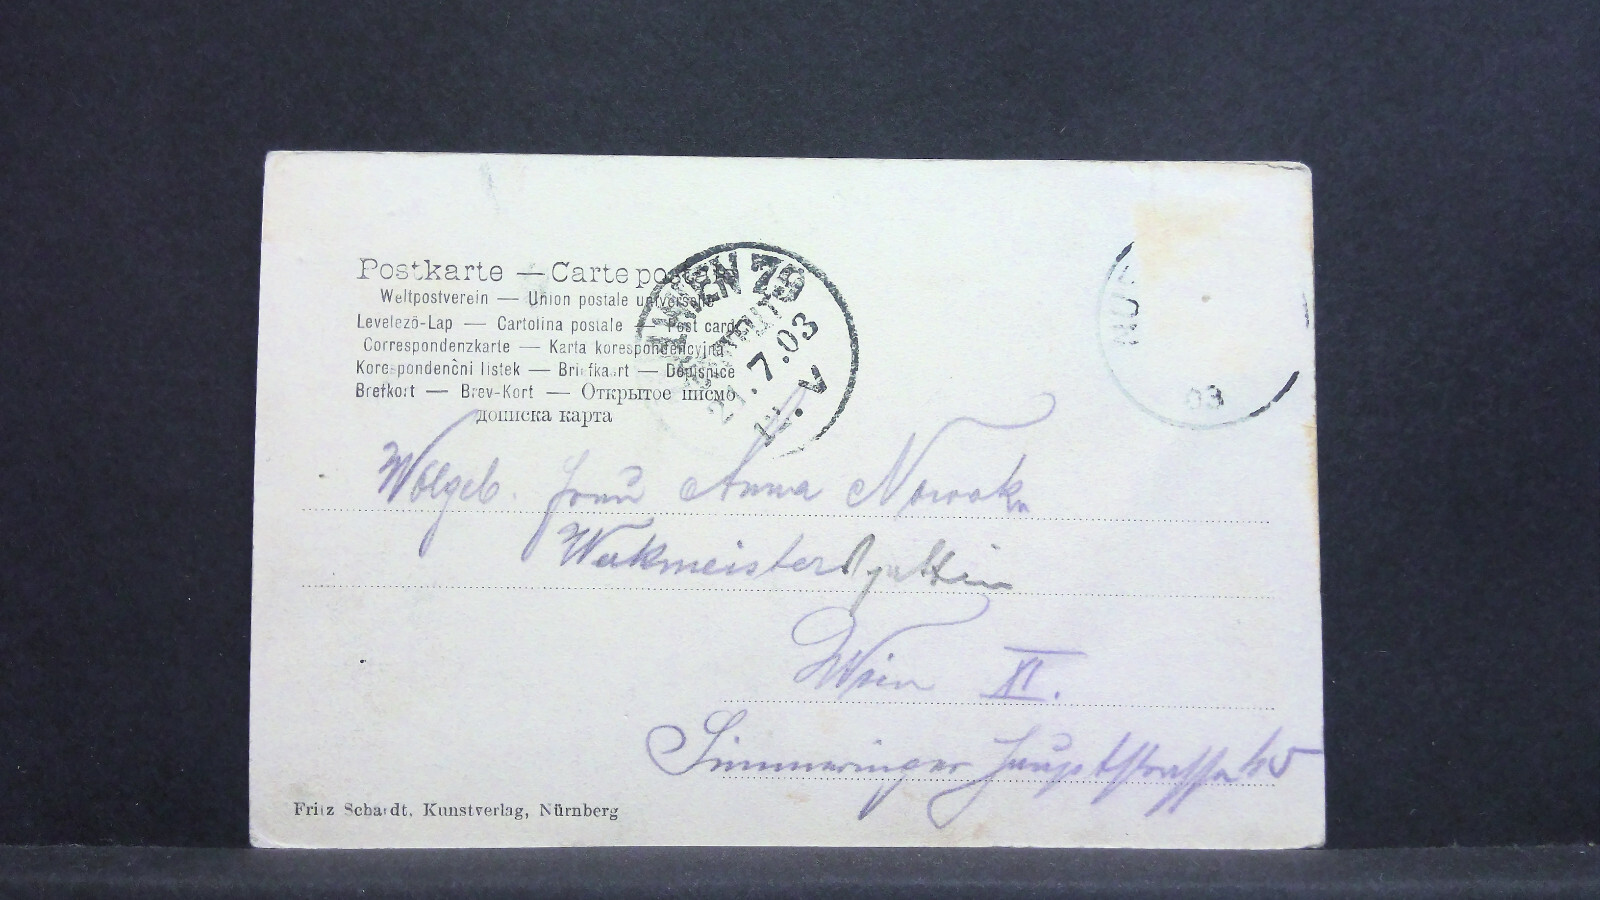 Postkarte — Carte postale
Weltpostverein — Union postale universelle
Levelező-Lap — Cartolina postale — Post card
Correspondenzkarte — Karta korespondencyjna
Korespondenční listek — Briefkaart — Dopisnice
Brefkort — Brev-Kort — Открытое письмо
дописка карта
WIEN 79
21.7.03
V
03
Wolgeb. Frau Anna Nowak
Werkmeistersgattin
Wien XI.
Simmeringer Hauptstrasse
Fritz Schardt, Kunstverlag, Nürnberg